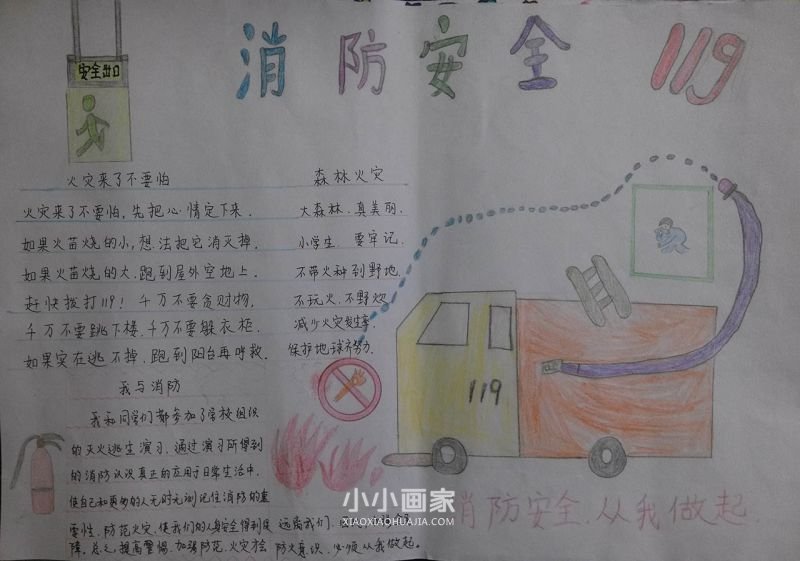 消防安全 119
安全出口
火灾来了不要怕
火灾来了不要怕,先把心情定下来.
如果火苗烧的小,想法把它消灭掉.
如果火苗烧的大,跑到屋外空地上.
赶快拨打119!千万不要贪财物,
千万不要跳下楼,千万不要躲衣柜.
如果实在逃不掉,跑到阳台再呼救.
森林火灾
大森林,真美丽.
小学生,要牢记.
不带火种到野地.
不玩火,不野炊
减少火灾发生率.
保护地球齐努力.
119
我与消防
我和同学们都参加了学校组织
的灭火逃生演习,通过演习所得到
的消防认识真正的应用于日常生活中,
使自己和更多的人无时无刻记住消防的重
要性,防范火灾,使我们的人身安全得到保
障.总之提高警惕,加强防范,火灾才会
远离我们,
防火意识,必须从我做起。
消防安全,从我做起
小小画家
XIAOXIAOHUAJIA.COM